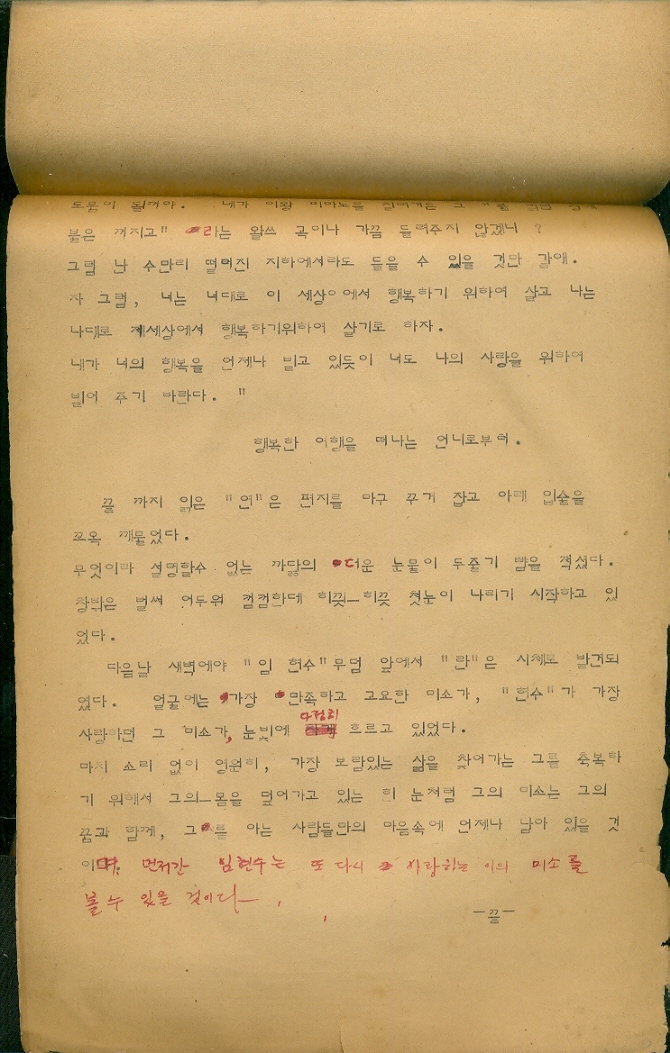 불은 꺼지고" 라는 왈쓰 곡이나 가끔 들려주지 않겠니 ?
그럼 난 수만리 떨어진 지하에서라도 들을 수 있을 것만 같애.
자 그럼, 너는 너대로 이 세상에서 행복하기 위하여 살고 나는
나대로 저세상에서 행복하기위하여 살기로 하자.
내가 너의 행복을 언제나 빌고 있듯이 너도 나의 사랑을 위하여
빌어 주기 바란다. "
행복한 여행을 떠나는 언니로부터.
끝 까지 읽은 "연"은 편지를 마구 꾸겨 잡고 아래 입술을
꼬옥 깨물었다.
무엇이라 설명할수 없는 까닭의 더운 눈물이 두줄기 뺨을 적셨다.
창밖은 벌써 어두워 컴컴한데 히끗—히끗 첫눈이 나리기 시작하고 있
었다.
다음날 새벽에야 "임 현수"무덤 앞에서 "란"은 시체로 발견되
였다. 얼굴에는 가장 만족하고 고요한 미소가, "현수"가 가장
사랑하던 그 미소가, 눈빛에 다정히 흐르고 있었다.
마치 소리 없이 영원히, 가장 보람있는 삶을 찾어가는 그를 축복하
기 위해서 그의 몸을 덮어가고 있는 흰 눈처럼 그의 미소는 그의
꿈과 함께, 그를 아는 사람들만의 마음속에 언제나 남아 있을 것
이며. 먼저간 임현수는 또 다시 사랑하는 이의 미소를
볼 수 있을 것이다—.
—끝—